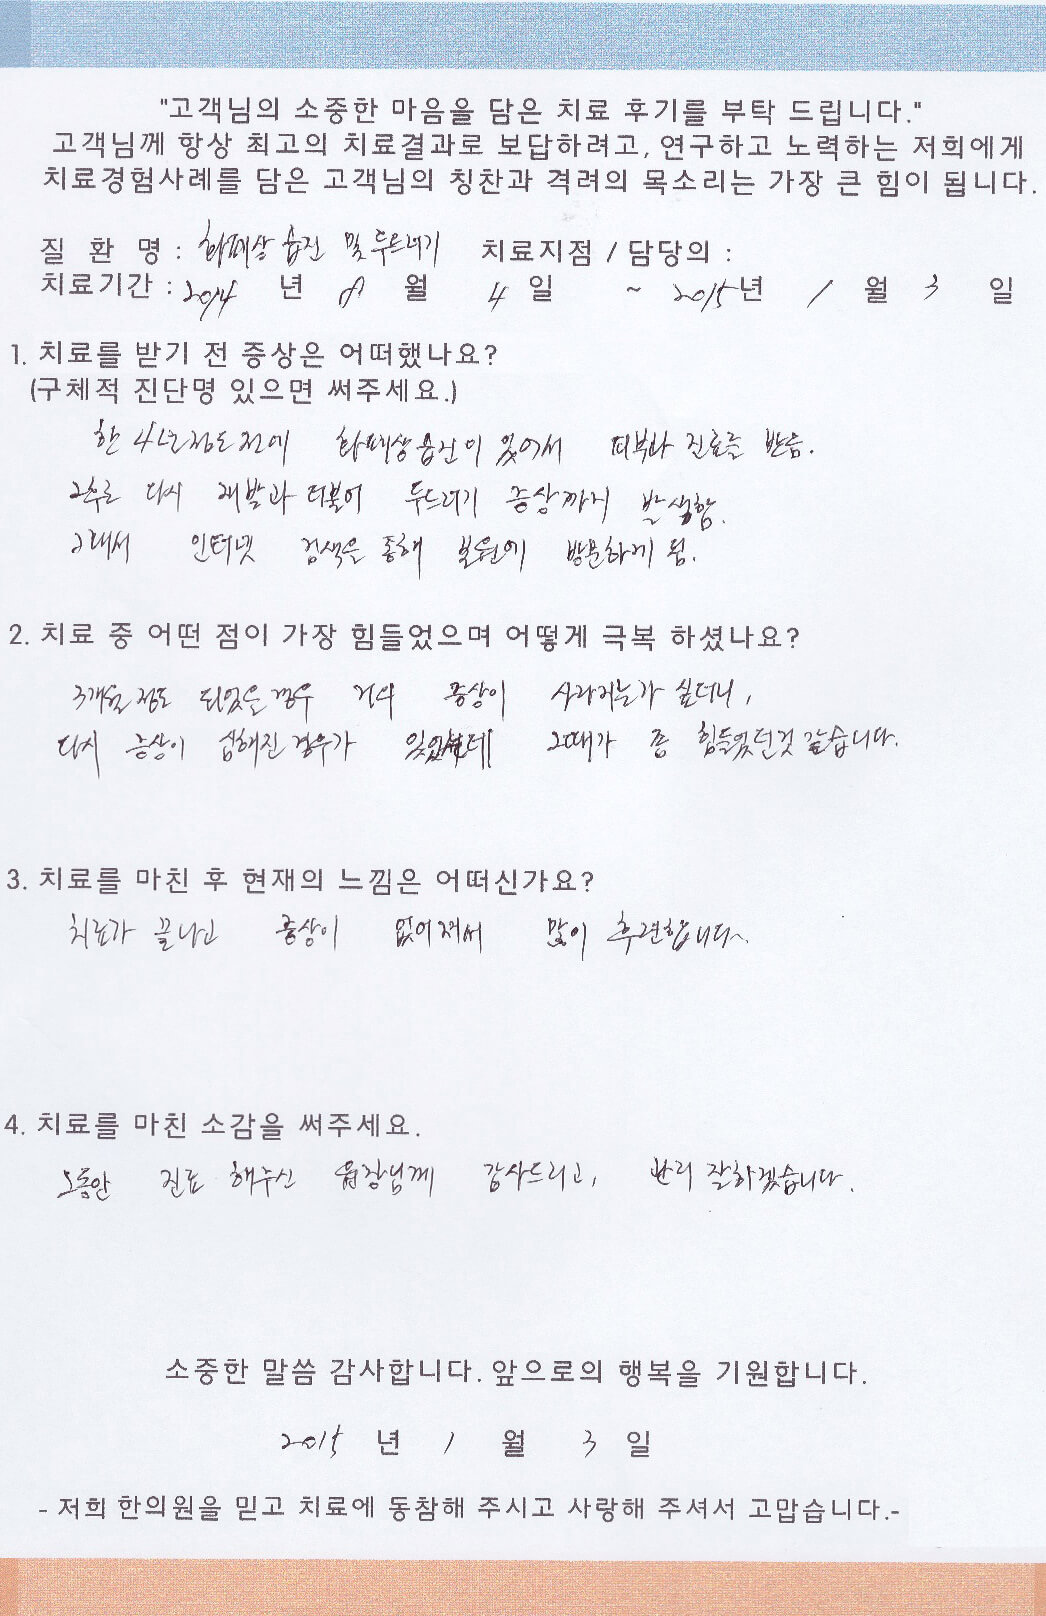 "고객님의 소중한 마음을 담은 치료 후기를 부탁 드립니다."
고객님께 항상 최고의 치료결과로 보답하려고, 연구하고 노력하는 저희에게
치료경험사례를 담은 고객님의 칭찬과 격려의 목소리는 가장 큰 힘이 됩니다.
질 환 명 : 화폐상 습진 및 두드러기 치료지점 / 담당의 :
치료기간 : 2014 년 8 월 4 일 ~ 2015 년 1 월 3 일
1. 치료를 받기 전 증상은 어떠했나요?
(구체적 진단명 있으면 써주세요.)
한 4년정도 전에 화폐상 습진이 있어서 피부과 진료를 받음.
2후로 다시 재발과 더불어 두드러기 증상까지 발생함.
그래서 인터넷 검색을 통해 본원에 방문하게 됨.
2. 치료 중 어떤 점이 가장 힘들었으며 어떻게 극복 하셨나요?
3개월 정도 되었을 경우 거의 증상이 사라지는가 싶더니,
다시 증상이 심해진 경우가 있었는데 그때가 좀 힘들었던것 같습니다.
3. 치료를 마친 후 현재의 느낌은 어떠신가요?
치료가 끝나고 증상이 없어져서 많이 후련합니다~
4. 치료를 마친 소감을 써주세요.
그동안 진료 해주신 원장님께 감사드리고, 관리 잘하겠습니다.
소중한 말씀 감사합니다. 앞으로의 행복을 기원합니다.
2015 년 1 월 3 일
- 저희 한의원을 믿고 치료에 동참해 주시고 사랑해 주셔서 고맙습니다.-